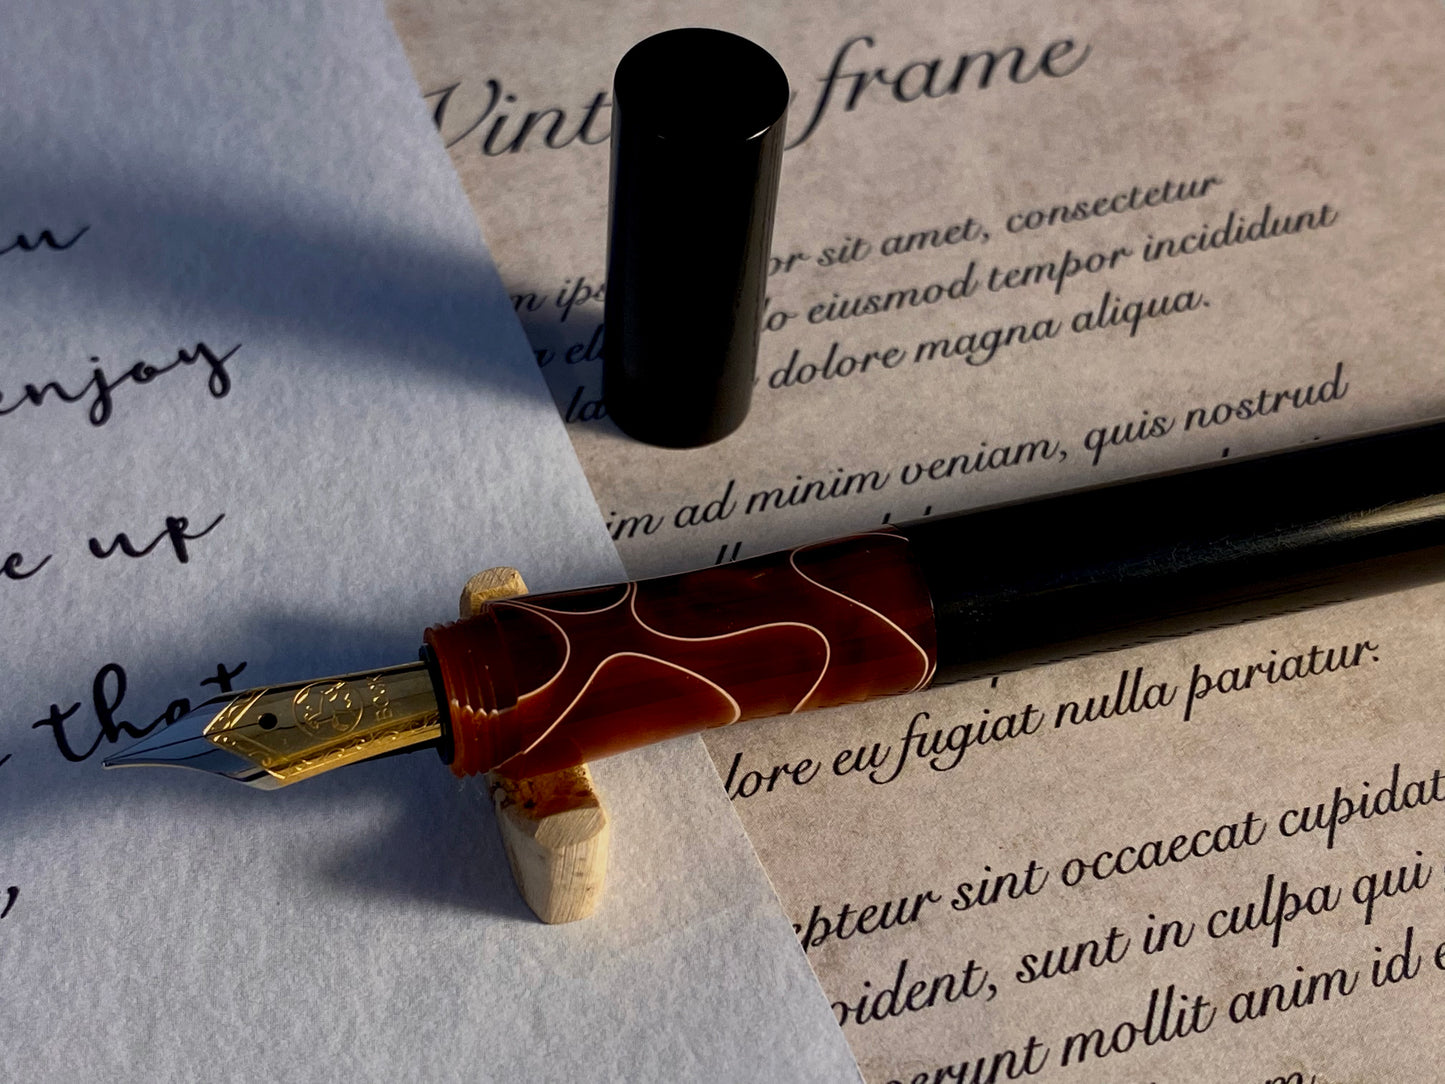 u
enjoy
e up
that
,
Vint frame
m ips or sit amet, consectetur
a el do eiusmod tempor incididunt
la dolore magna aliqua.
im ad minim veniam, quis nostrud
lore eu fugiat nulla pariatur.
epteur sint occaecat cupidat
oident, sunt in culpa qui
erunt mollit anim id e
BOCK